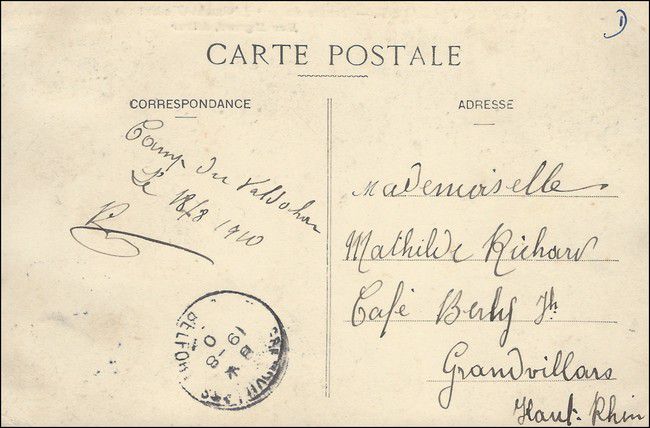 CARTE POSTALE
CORRESPONDANCE
ADRESSE
Camp du Valdohan
Le 18/8 1910
R
Mademoiselle
Mathilde Richard
Café Berly Jh
Grandvillars
Haut-Rhin
GRANDVILLARS
BELFORT